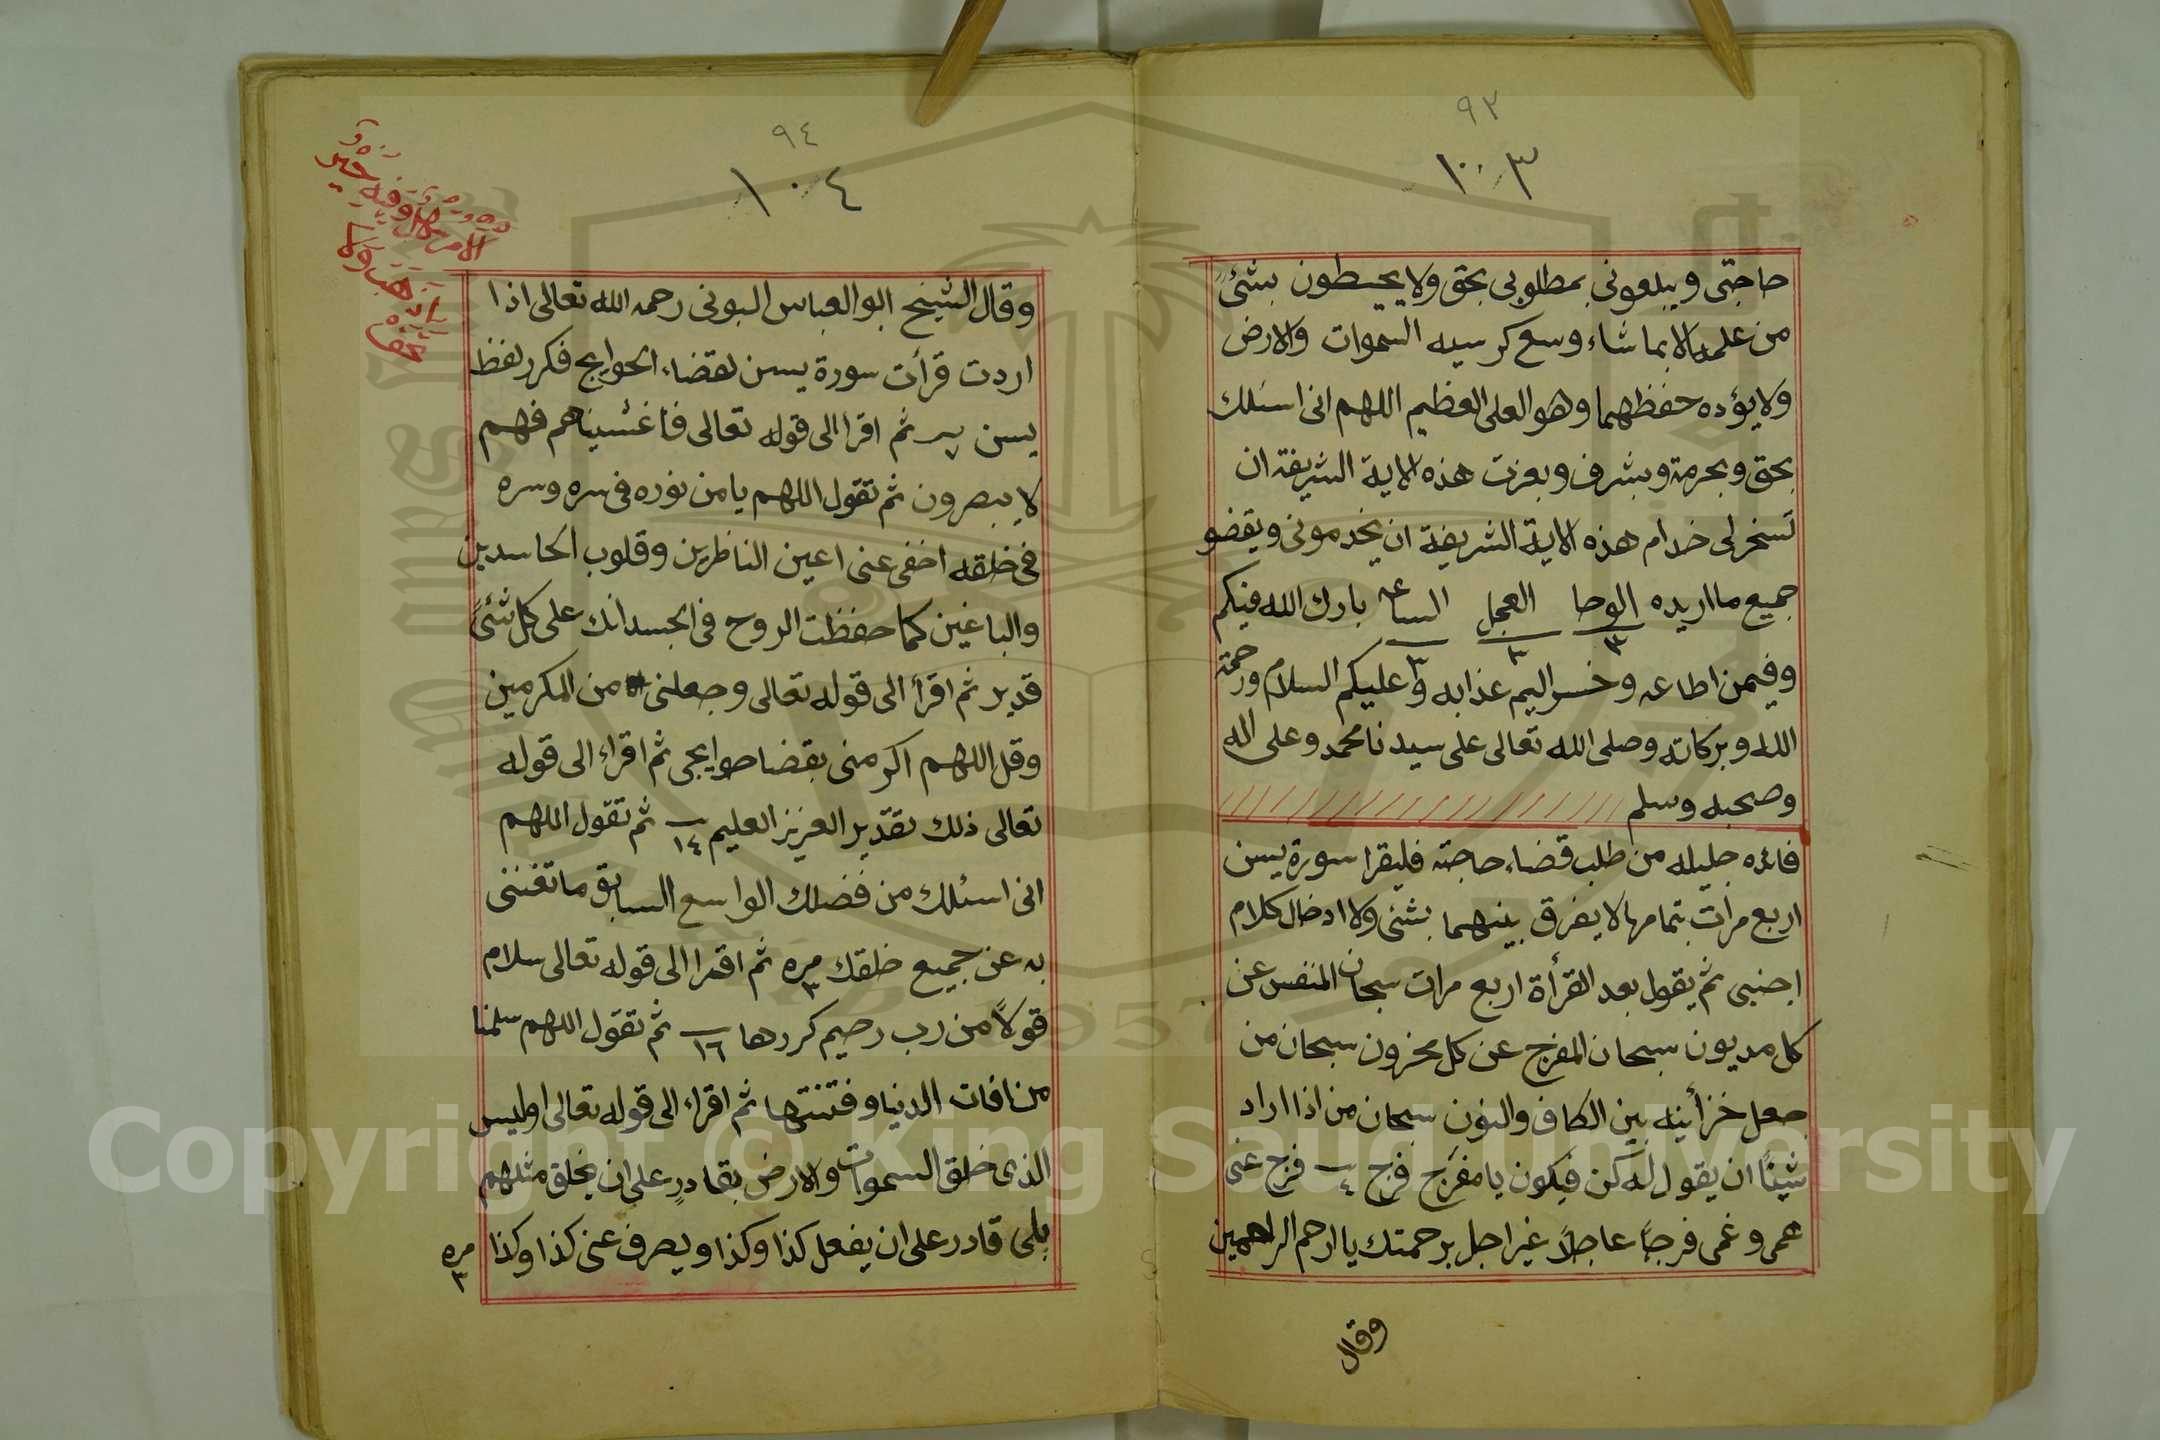 ٩٣
١٠٣
حاجتى ويبلغونى بمطلوبى بحق ولا يحيطون بشئ
من علمه الا بما شاء وسع كرسيه السموات والارض
ولا يؤده حفظهما وهو العلى العظيم اللهم انى اسئلك
بحق وبحرمة وبشرف وبعزت هذه الاية الشريفة ان
تسخر لى خدام هذه الاية الشريفة ان يخدمونى ويقضو
جميع ما اريده الوحا العجل الساعه بارك الله فيكم
٣ ٣ ٣
وفيمن اطاعه وخسر اليم عذابه وعليكم السلام ورحمة
الله وبركاته وصلى الله تعالى على سيدنا محمد وعلى اله
وصحبه وسلم
فائده جليله من طلب قضاء حاجته فليقرا سورة يسن
اربع مرات بتمامها لا يفرق بينهما بشئ ولا ادخال كلام
اجنبى ثم يقول بعد القرأة اربع مرات سبحان المنفس عن
كل مديون سبحان المفرج عن كل محزون سبحان من
جعل خزأينه بين الكاف والنون سبحان من اذا اراد
شيئاً ان يقول له كن فيكون يا مفرج فرج ٤ فرج عنى
همى وغمى فرجاً عاجلاً غير اجل برحمتك يا ارحم الراحمين
وقال
٩٤
١٠٤
وقال الشيخ ابو العباس البونى رحمه الله تعالى اذا
اردت قرأت سورة يسن لقضاء الحوايج فكرر لفظ
يسن ثم اقرا الى قوله تعالى فاغشيناهم فهم
لا يبصرون ثم تقول اللهم يا من نوره فى سره وسره
فى خلقه اخفى عنى اعين الناظرين وقلوب الحاسدين
والباغين كما حفظت الروح فى الجسد انك على كل شئ
قدير ثم اقرأ الى قوله تعالى وجعلنى من المكرمين
وقل اللهم اكرمنى بقضا حوايجى ثم اقراء الى قوله
تعالى ذلك تقدير العزيز العليم ١٤ ثم تقول اللهم
انى اسئلك من فضلك الواسع السابق ما تغننى
به عن جميع خلقك مره ٣ ثم اقرا الى قوله تعالى سلام
قولاً من رب رحيم كررها ١٦ ثم تقول اللهم سلمنا
من افات الدنيا وفتنتها ثم اقراء الى قوله تعالى اوليس
الذى خلق السموات والارض بقادر على ان يخلق مثلهم
بلى قادر على ان يفعل كذا وكذا ويصرف عنى كذا وكذا مره ٣
Copyright © King Saud University
1957